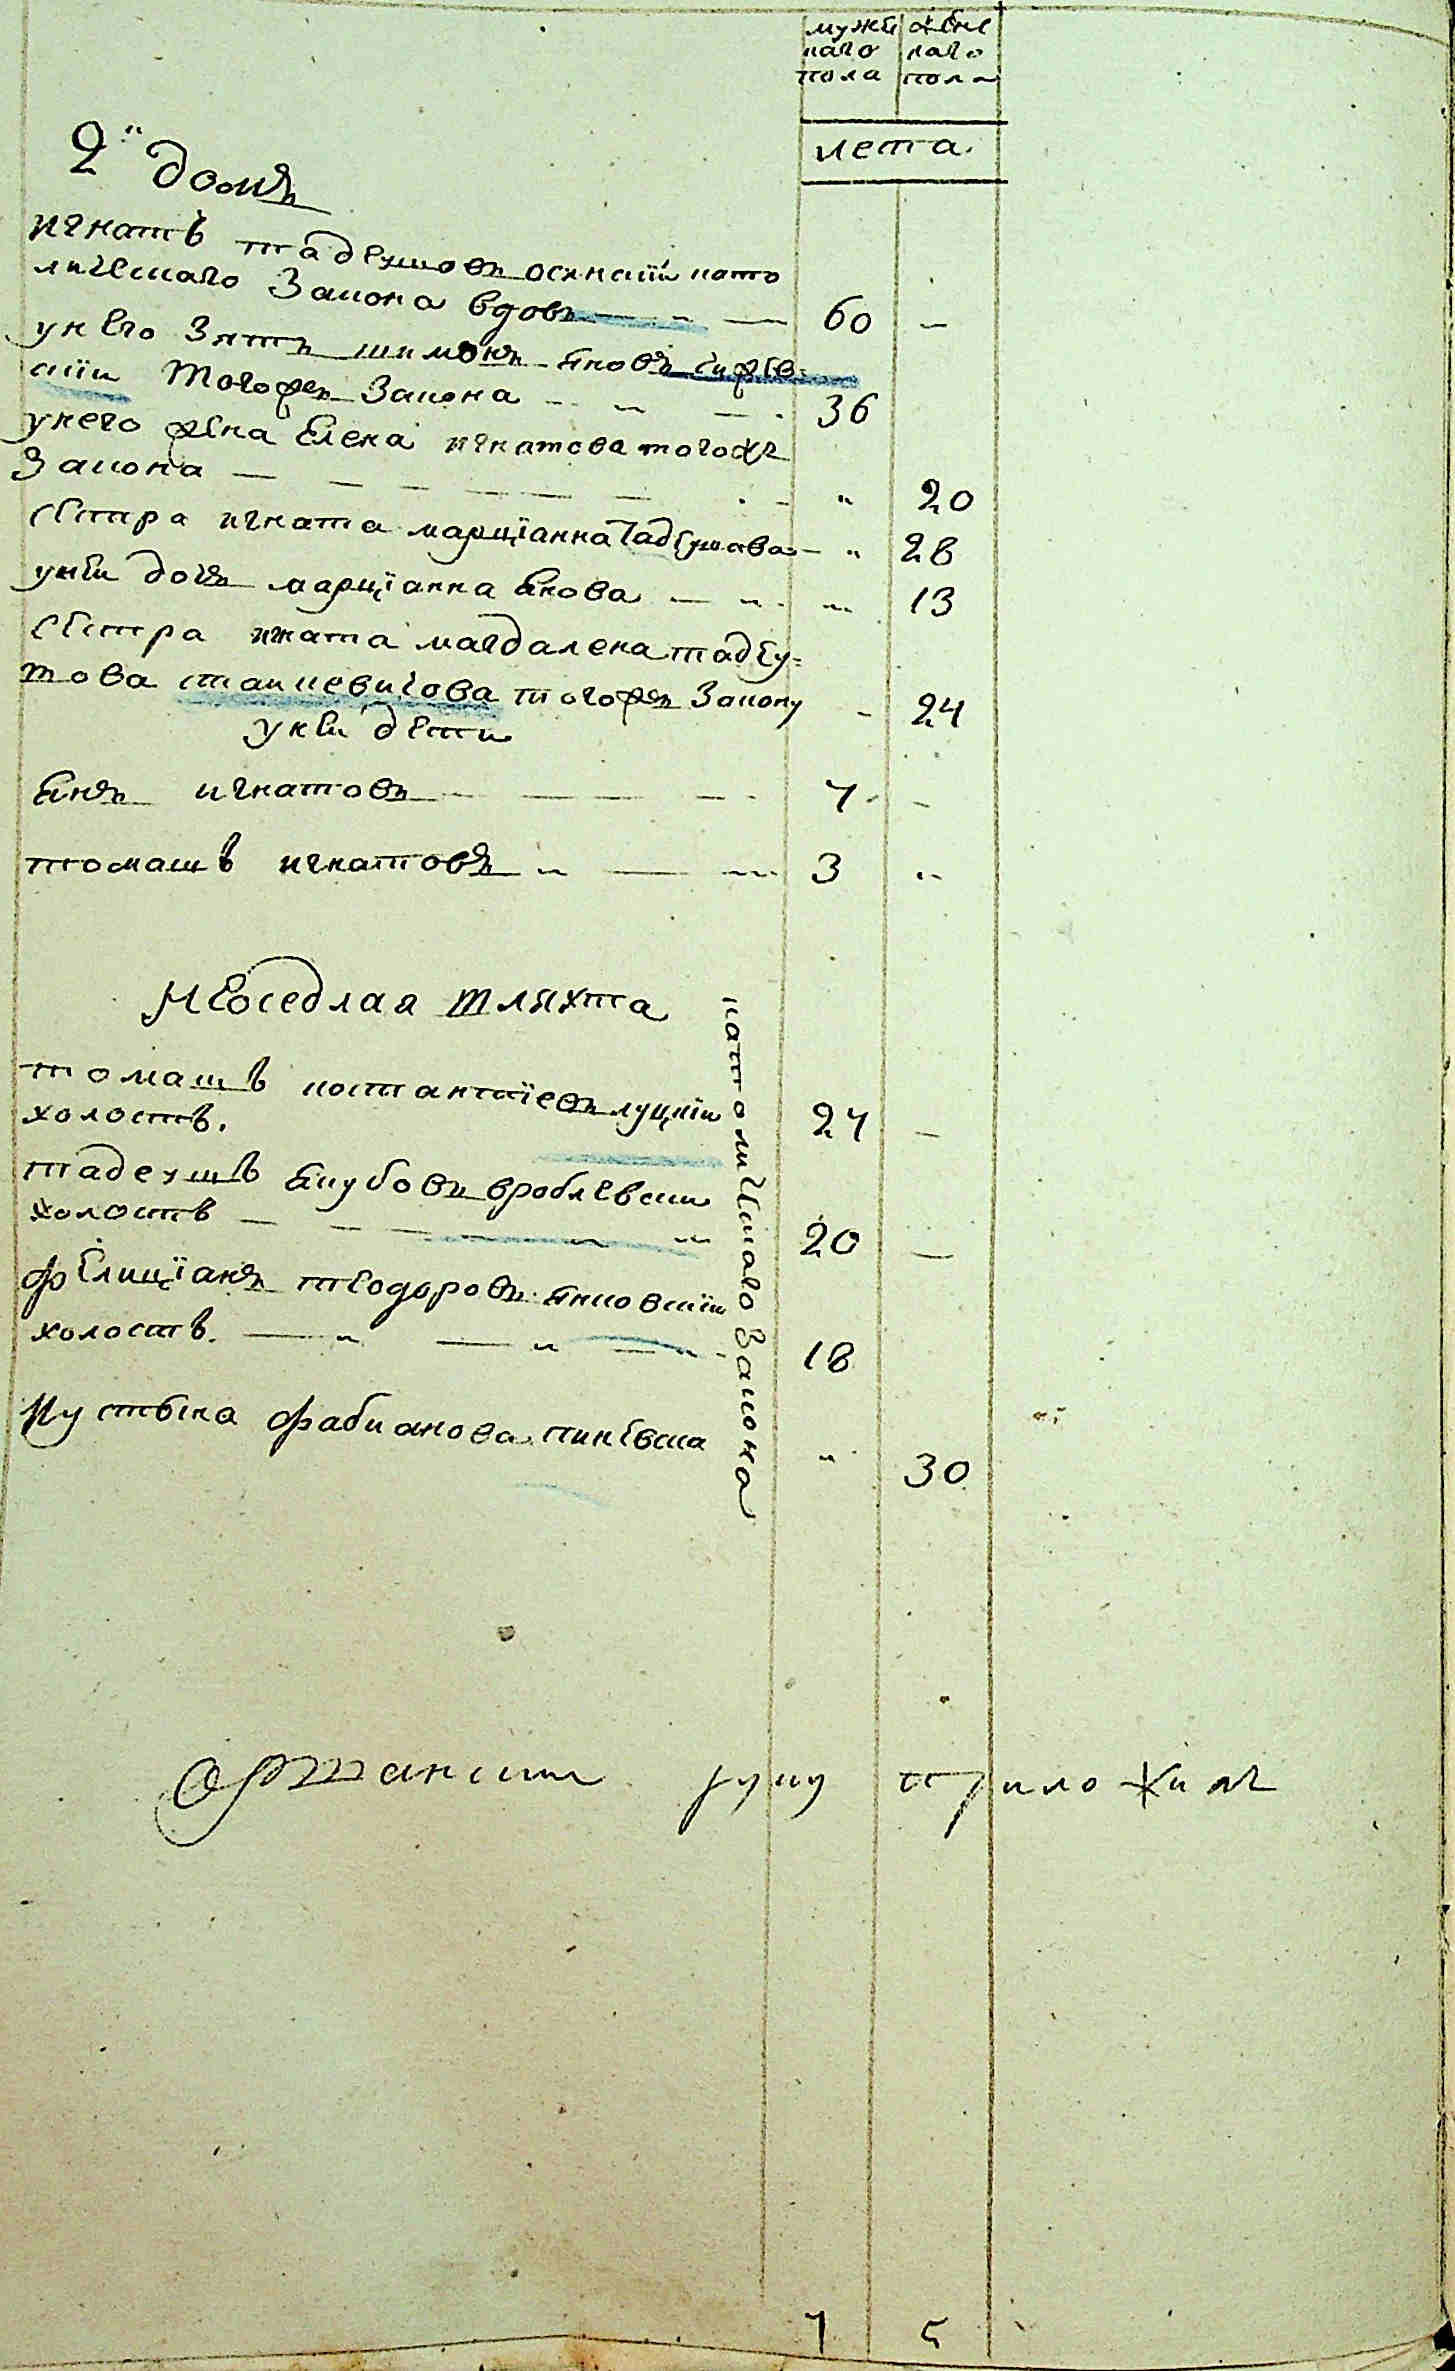 мужескаго пола женскаго пола
лета.
2й домъ
игнатъ тадеушовъ осинскій като
лическаго Закона вдовъ — 60 —
у него Зять шимонъ яновъ
скій тогожъ Закона — 36
у него жена Елена игнатова тогожъ
Закона — " 20
сестра игната марціанна Тадеушова — " 28
у ней дочь марціанна янова — " 13
сестра игната магдалена тадеу=
шова станкевичова тогожъ Закону - 24
у ней дети
янъ игнатовъ — 7 —
томашъ игнатовъ — 3 "
неоседлая шляхта
томашъ костантіевъ луцкій
холостъ. 24 —
тадеушъ якубовъ вроблевски
холостъ — 20 —
фелиціанъ теодоровъ янковскій
холостъ. — 18
юстына фабианова пиневска " 30
католическаго Закона
руку приложилъ
7 5